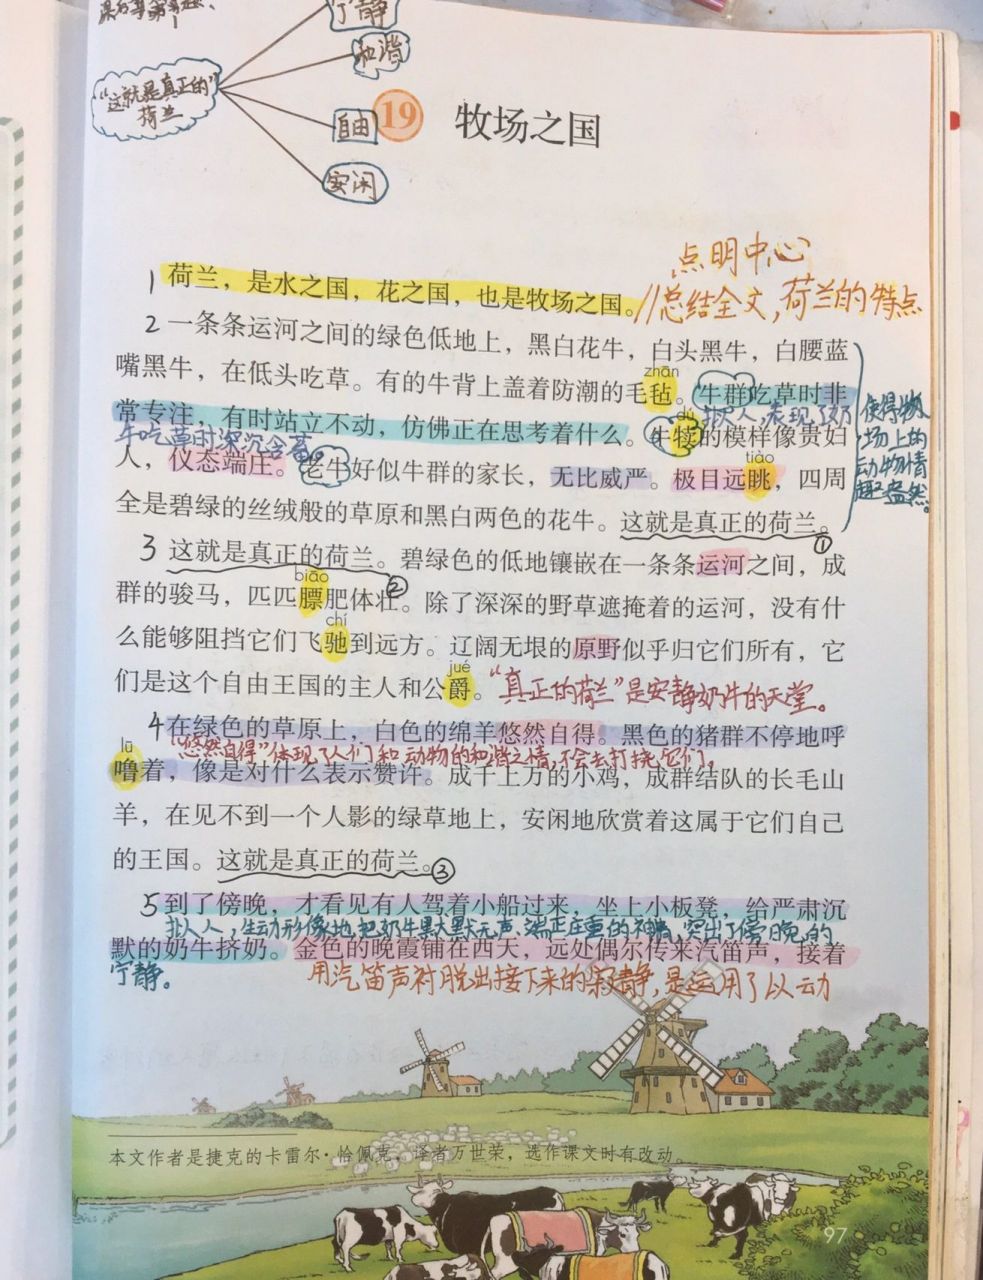 宁静
和谐
“这就是真正的”
荷兰
自由
安闲
19 牧场之国
点明中心
1 荷兰，是水之国，花之国，也是牧场之国。//总结全文，荷兰的特点
2 一条条运河之间的绿色低地上，黑白花牛，白头黑牛，白腰蓝
zhān
嘴黑牛，在低头吃草。有的牛背上盖着防潮的毛毡。牛群吃草时非
拟人，表现了奶
牛吃草时深沉含蓄。
使得牧
场上的
动物情
趣盎然。
dú
常专注，有时站立不动，仿佛正在思考着什么。牛犊的模样像贵妇
tiào
人，仪态端庄。老牛好似牛群的家长，无比威严。极目远眺，四周
全是碧绿的丝绒般的草原和黑白两色的花牛。这就是真正的荷兰。
①
3 这就是真正的荷兰。碧绿色的低地镶嵌在一条条运河之间，成
②
biāo
群的骏马，匹匹膘肥体壮。除了深深的野草遮掩着的运河，没有什
chí
么能够阻挡它们飞驰到远方。辽阔无垠的原野似乎归它们所有，它
jué
们是这个自由王国的主人和公爵。“真正的荷兰”是安静奶牛的天堂。
4 在绿色的草原上，白色的绵羊悠然自得。黑色的猪群不停地呼
“悠然自得”体现了人们和动物的和谐之情，不会去打扰它们。
lū
噜着，像是对什么表示赞许。成千上万的小鸡，成群结队的长毛山
羊，在见不到一个人影的绿草地上，安闲地欣赏着这属于它们自己
的王国。这就是真正的荷兰。③
5 到了傍晚，才看见有人驾着小船过来，坐上小板凳，给严肃沉
拟人，生动形象地把奶牛默默无声，端正庄重的神情，突出了傍晚的
宁静。
默的奶牛挤奶。金色的晚霞铺在西天，远处偶尔传来汽笛声，接着
用汽笛声衬脱出接下来的寂静，是运用了以动
本文作者是捷克的卡雷尔·恰佩克，译者万世荣，选作课文时有改动。
97